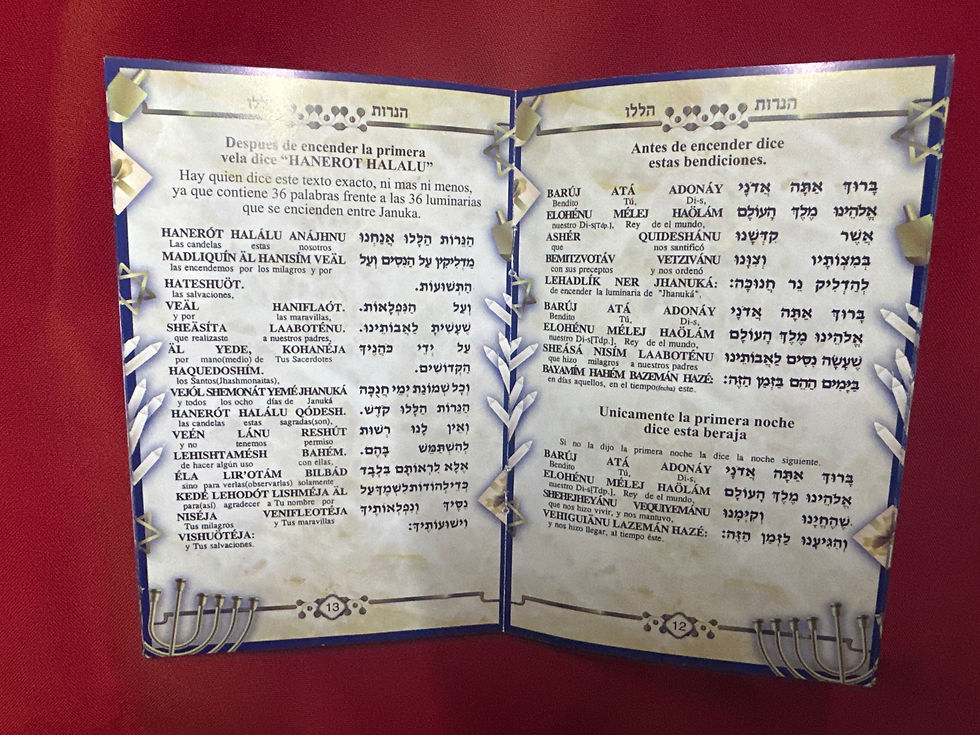 הנרות הללו
Antes de encender dice
estas bendiciones.
BARÚJ ATÁ ADONÁY בָּרוּךְ אַתָּה אֲדֹנָי
Bendito Tú, Di-s,
ELOHÉNU MÉLEJ HAÖLÁM אֱלֹהֵינוּ מֶלֶךְ הָעוֹלָם
nuestro Di-s[Tdp.], Rey de el mundo,
ASHÉR QUIDESHÁNU אֲשֶׁר קִדְּשָׁנוּ
que nos santificó
BEMITZVOTÁV VETZIVÁNU בְּמִצְוֹתָיו וְצִוָּנוּ
con sus preceptos y nos ordenó
LEHADLÍK NER JHANUKÁ: לְהַדְלִיק נֵר חֲנוּכָּה:
de encender la luminaria de "Jhanuká",
BARÚJ ATÁ ADONÁY בָּרוּךְ אַתָּה אֲדֹנָי
Bendito Tú, Di-s,
ELOHÉNU MÉLEJ HAÖLÁM אֱלֹהֵינוּ מֶלֶךְ הָעוֹלָם
nuestro Di-s[Tdp.], Rey de el mundo,
SHEÁSÁ NISÍM LAABOTÉNU שֶׁעָשָׂה נִסִּים לַאֲבוֹתֵינוּ
que hizo milagros a nuestros padres
BAYAMÍM HAHÉM BAZEMÁN HAZÉ: בַּיָּמִים הָהֵם בַּזְּמַן הַזֶּה:
en días aquellos, en el tiempo(fecha) éste.
Unicamente la primera noche
dice esta beraja
Si no la dijo la primera noche la dice la noche siguiente.
BARÚJ ATÁ ADONÁY בָּרוּךְ אַתָּה אֲדֹנָי
Bendito Tú, Di-s,
ELOHÉNU MÉLEJ HAÖLÁM אֱלֹהֵינוּ מֶלֶךְ הָעוֹלָם
nuestro Di-s[Tdp.], Rey de el mundo,
SHEHEJHEYÁNU VEQUIYEMÁNU שֶׁהֶחֱיָנוּ וְקִיְּמָנוּ
que nos hizo vivir, y nos mantuvo,
VEHIGUIÁNU LAZEMÁN HAZÉ: וְהִגִּיעָנוּ לַזְּמַן הַזֶּה:
y nos hizo llegar, al tiempo éste.
12
הנרות ללו
Despues de encender la primera
vela dice “HANEROT HALALU”
Hay quien dice este texto exacto, ni mas ni menos,
ya que contiene 36 palabras frente a las 36 luminarias
que se encienden entre Januka.
HANERÓT HALÁLU ANÁJHNU הַנֵּרוֹת הַלָּלוּ אֲנַחְנוּ
Las candelas estas nosotros
MADLIQUÍN ÄL HANISÍM VEÄL מַדְלִיקִין עַל הַנִּסִּים וְעַל
las encendemos por los milagros y por
HATESHUÖT. הַתְּשׁוּעוֹת.
las salvaciones,
VEÄL HANIFLAÓT. וְעַל הַנִּפְלָאוֹת.
y por las maravillas,
SHEÄSÍTA LAABOTÉNU. שֶׁעָשִׂיתָ לַאֲבוֹתֵינוּ.
que realizaste a nuestros padres,
ÄL YEDE, KOHANÉJA עַל יְדֵי כֹּהֲנֶיךָ
por mano(medio) de Tus Sacerdotes
HAQUEDOSHÍM. הַקְּדוֹשִׁים.
los Santos(Jhashmonaitas),
VEJÓL SHEMONÁT YEMÉ JHANUKÁ וְכָל שְׁמוֹנַת יְמֵי חֲנֻכָּה
y todos los ocho días de Januká
HANERÓT HALÁLU QÓDESH. הַנֵּרוֹת הַלָּלוּ קֹדֶשׁ.
las candelas estas sagradas(son),
VEÉN LÁNU RESHÚT וְאֵין לָנוּ רְשׁוּת
y no tenemos permiso
LEHISHTAMÉSH BAHÉM. לְהִשְׁתַּמֵּשׁ בָּהֶם.
de hacer algún uso con ellas,
ÉLA LIR'OTÁM BILBÁD אֶלָּא לִרְאוֹתָם בִּלְבָד
sino para verlas(observarlas) solamente
KEDÉ LEHODÓT LISHMÉJA ÄL כְּדֵי לְהוֹדוֹת לִשְׁמְךָ עַל
para(así) agradecer a Tu nombre por
NISÉJA VENIFLEOTÉJA נִסֶּיךָ וְנִפְלְאוֹתֶיךָ
Tus milagros y Tus maravillas
VISHUÖTÉJA: וִישׁוּעוֹתֶיךָ:
y Tus salvaciones.
13